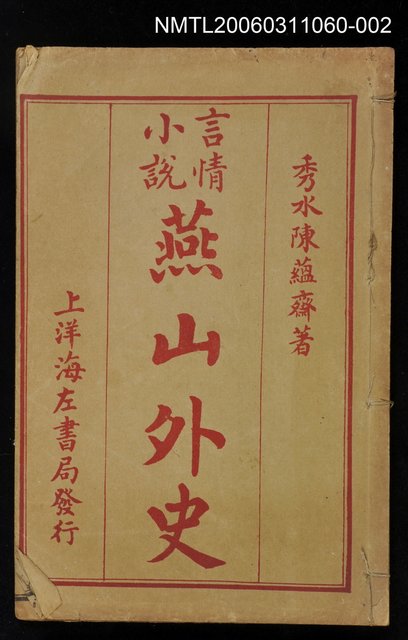 NMTL20060311060-002
秀水陳蘊齋著
言情
小說
燕山外史
上洋海左書局發行